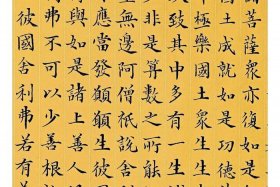 諸菩薩衆亦復如是
國土成就如是功德
極樂國土衆生生
致其中多有一生
非是算數之所能
無邊阿僧祇說舍
應當發願願生
與如是諸上善
弗不可以少善根
彼國舍利弗若有